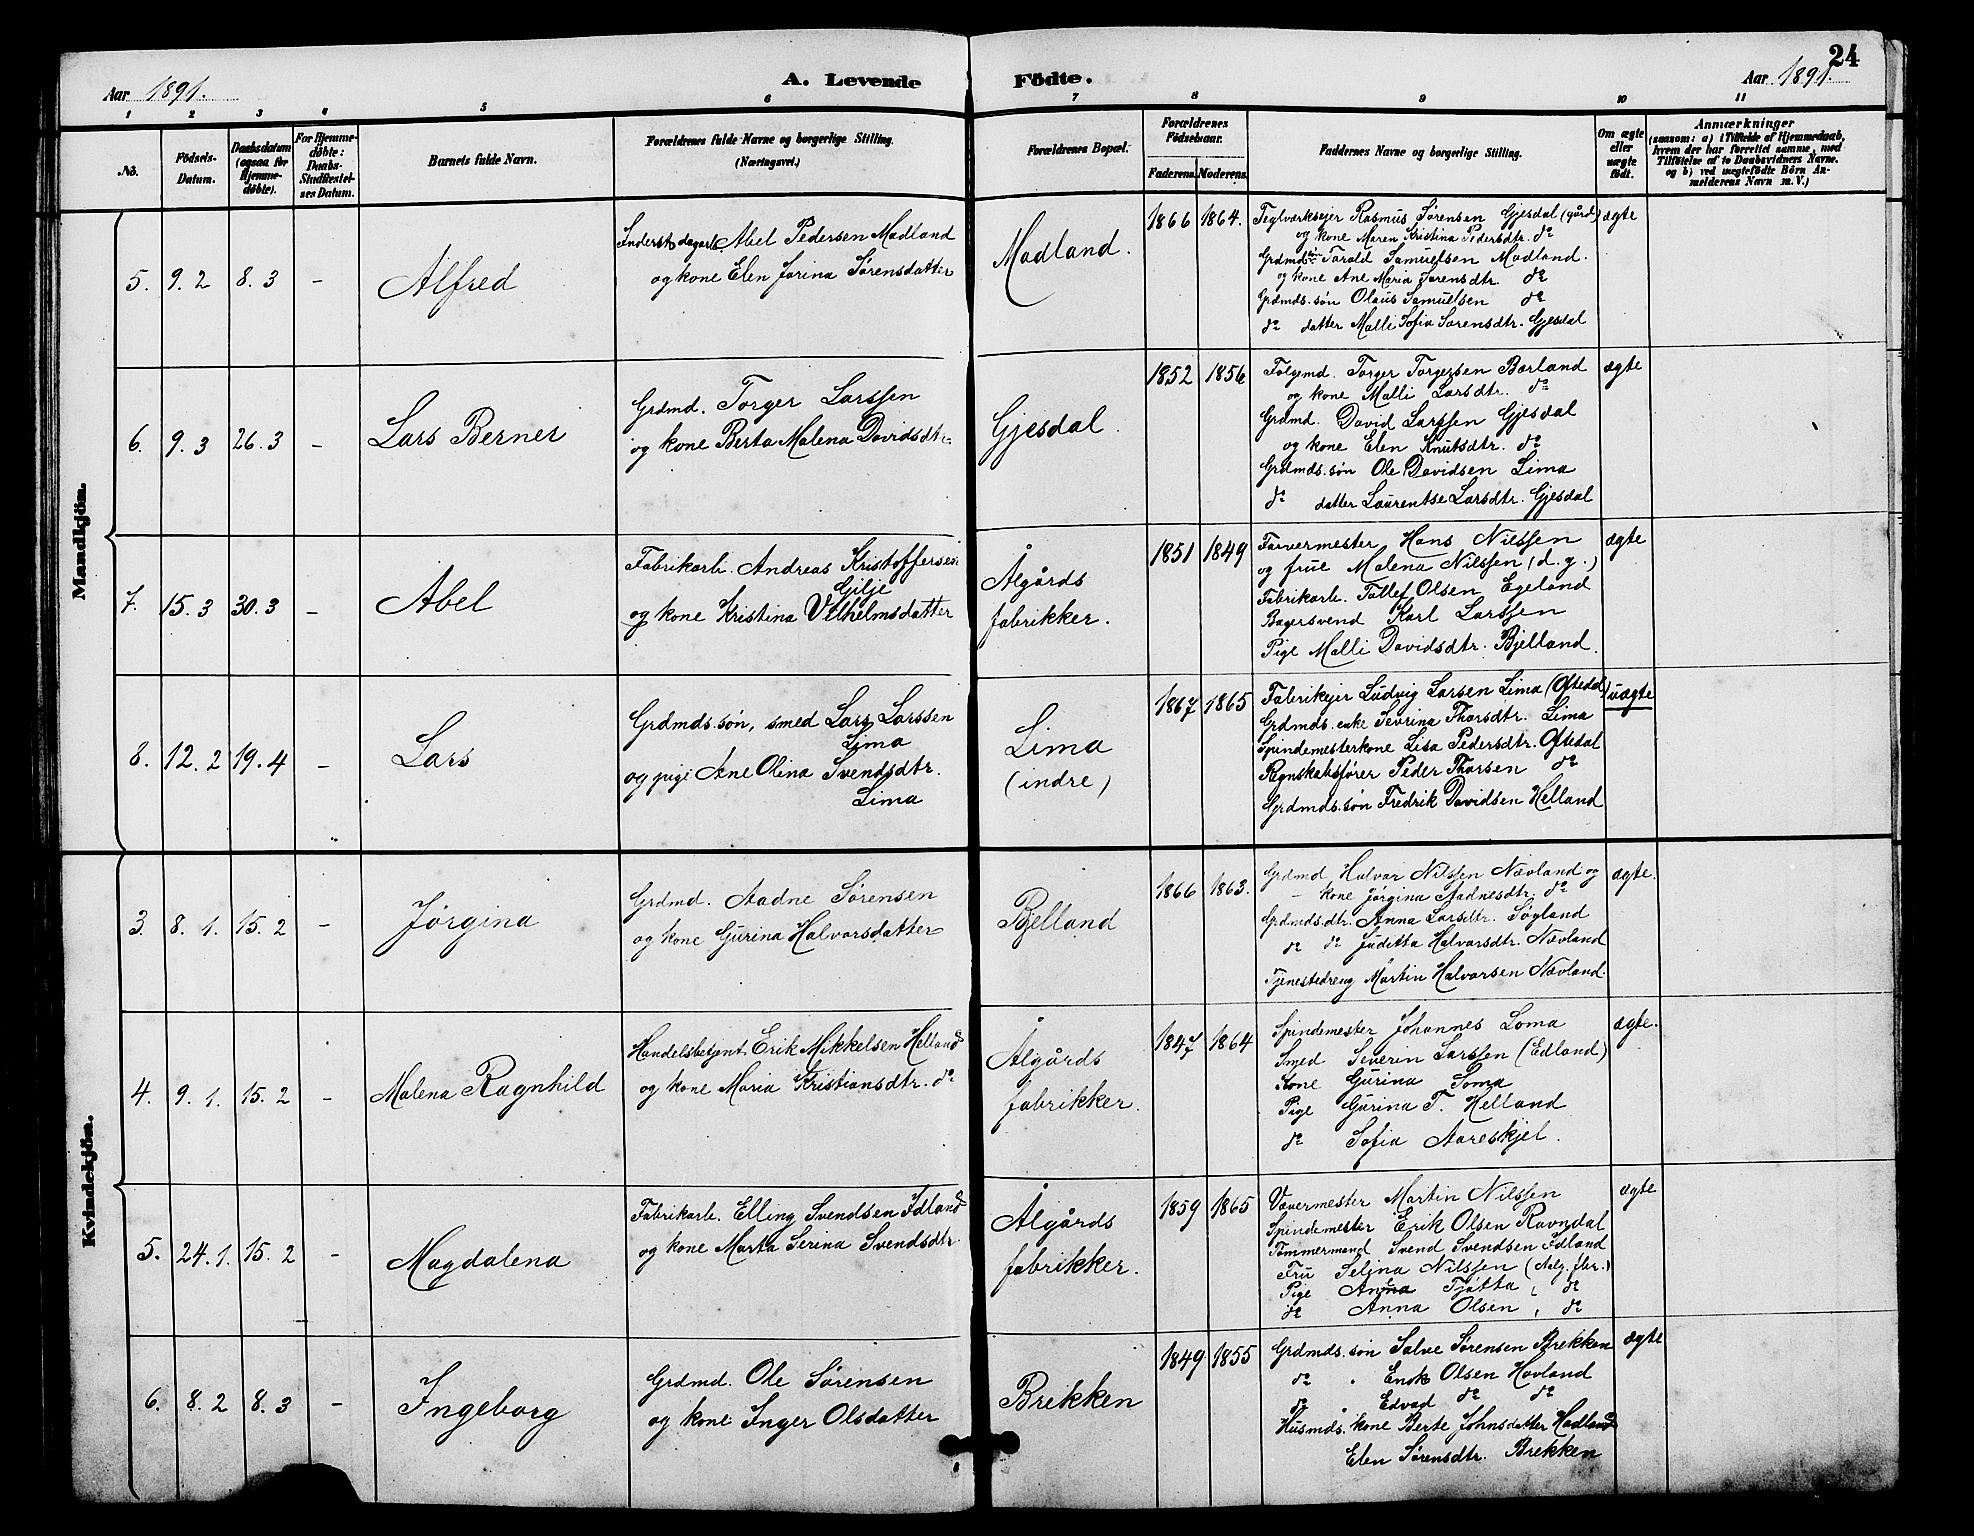 24
Aar 1891.
A. Levende Födte.
Aar 1891.
1 2 3 4 5 6 7 8 9 10 11
No.
Födsels-Datum.
Daabsdatum (ogsaa for Hjemme-døbte).
For Hjemme-døbte: Daabs-Stadfæstel-ses Datum.
Barnets fulde Navn.
Forældrenes fulde Navne og borgerlige Stilling. (Næringsvei.)
Forældrenes Bopæl.
Forældrenes Födselsaar.
Faderens. Moderens.
Faddernes Navne og borgerlige Stilling.
Om ægte eller uægte født.
Anmærkninger
(saasom: a) i Tilfælde af Hjemmedaab, hvem der har forrettet samme, med Tilføielse af to Daabsvidners Navne. og b) ved uægtefödte Börn An-melderens Navn m. V.)
Mandkjön.
5. 9. 2 8. 3 – Alfred
Inderst dagarb. Abel Pedersen Madland
og kone Elen Jorina Sørensdatter
Madland.
1866 1864.
Teglværksejer Rasmus Sørensen Gjesdal (gård)
og kone Maren Kristina Pedersdtr. do
Grdmd Torald Samuelsen Madland.
og kone Ane Maria Sørensdtr. do
Grdmds. søn Olaus Samuelsen do
do datter Malli Sofia Sørensdtr. Gjesdal
ægte
6. 9. 3 26. 3 – Lars Berner
Grdmd. Torger Larssen
og kone Berta Malena Davidsdtr.
Gjesdal.
1852 1856
Folgemd. Torger Torgersen Børland
og kone Malli Larsdtr. do
Grdmd. David Larssen Gjesdal
og kone Elen Knutsdtr. do
Grdmds. søn Ole Davidsen Lima
do datter Laurentse Larsdtr. Gjesdal
ægte
7. 15. 3 30. 3 – Abel
Fabrikarb. Andreas Kristoffersen
Gilje
og kone Kristina Vilhelmsdatter
Ålgårds
fabrikker.
1851 1849
Farvermester Hans Nilssen
og frue Malena Nilssen (d. g.)
Fabrikarb. Tollef Olsen Egeland
Bagersvend Karl Larssen
Pige Malli Davidsdtr. Bjelland.
ægte
8. 12. 2 19. 4 – Lars
Grdmds. søn, smed Lars Larssen
Lima
og pige Ane Olina Svendsdtr.
Lima
Lima
(indre)
1867 1865
Fabrikejer Ludvig Larsen Lima (Oftedal)
Grdmds. enke Sevrina Thorsdtr. Lima
Spindemesterkone Lisa Pedersdtr. Oftedal
Regnskabsfører Peder Thorsen do
Grdmds. søn Fredrik Davidsen Helland
uægte
Kvindekjön.
3. 8. 1. 15. 2 – Jørgina
Grdmd. Aadne Sørensen
og kone Gurina Halvorsdatter
Bjelland
1866 1863.
Grdmd Halvor Nilssen Nævland og
– kone Jørgina Aadnesdtr. do
Grdmds. dtr. Anna Larsdtr. Søyland
do do Juditta Halvorsdtr. Nævland
Tjenestedreng Martin Halvorsen Nævland.
ægte.
4. 9. 1. 15. 2 – Malena Ragnhild
Handelsbetjent Erik Mikkelsen Helland
og kone Maria Kristiansdtr. do
Ålgårds
fabrikker.
1847 1864
Spindemester Johannes Soma
Smed Severin Larssen (Edland)
Kone Gurina Soma
Pige Gurina T. Helland
do Sofia Aareskjel.
ægte.
5. 24. 1. 15. 2 – Magdalena
Fabrikarb. Elling Svendsen Idland
og kone Marta Serina Svendsdtr.
Ålgårds
fabrikker.
1859 1865
Vævermester Martin Nilssen
Spindemester Erik Olsen Ravndal
Tømmermand Svend Svendsen Idland
Fru Selina Nilssen (Aalg. fbr.)
Pige Anna Tjøtta, do
do Anna Olsen, do
ægte
6. 8. 2 8. 3 – Ingeborg
Grdmd. Ole Sørensen
og kone Inger Olsdatter
Brekken
1849 1855
Grdmds. søn Salve Sørensen Brekken
do Enok Olsen Hovland
do Edvad do do
Husmds. kone Berte Johnsdatter Madland
Elen Sørensdtr. Brekken
ægte